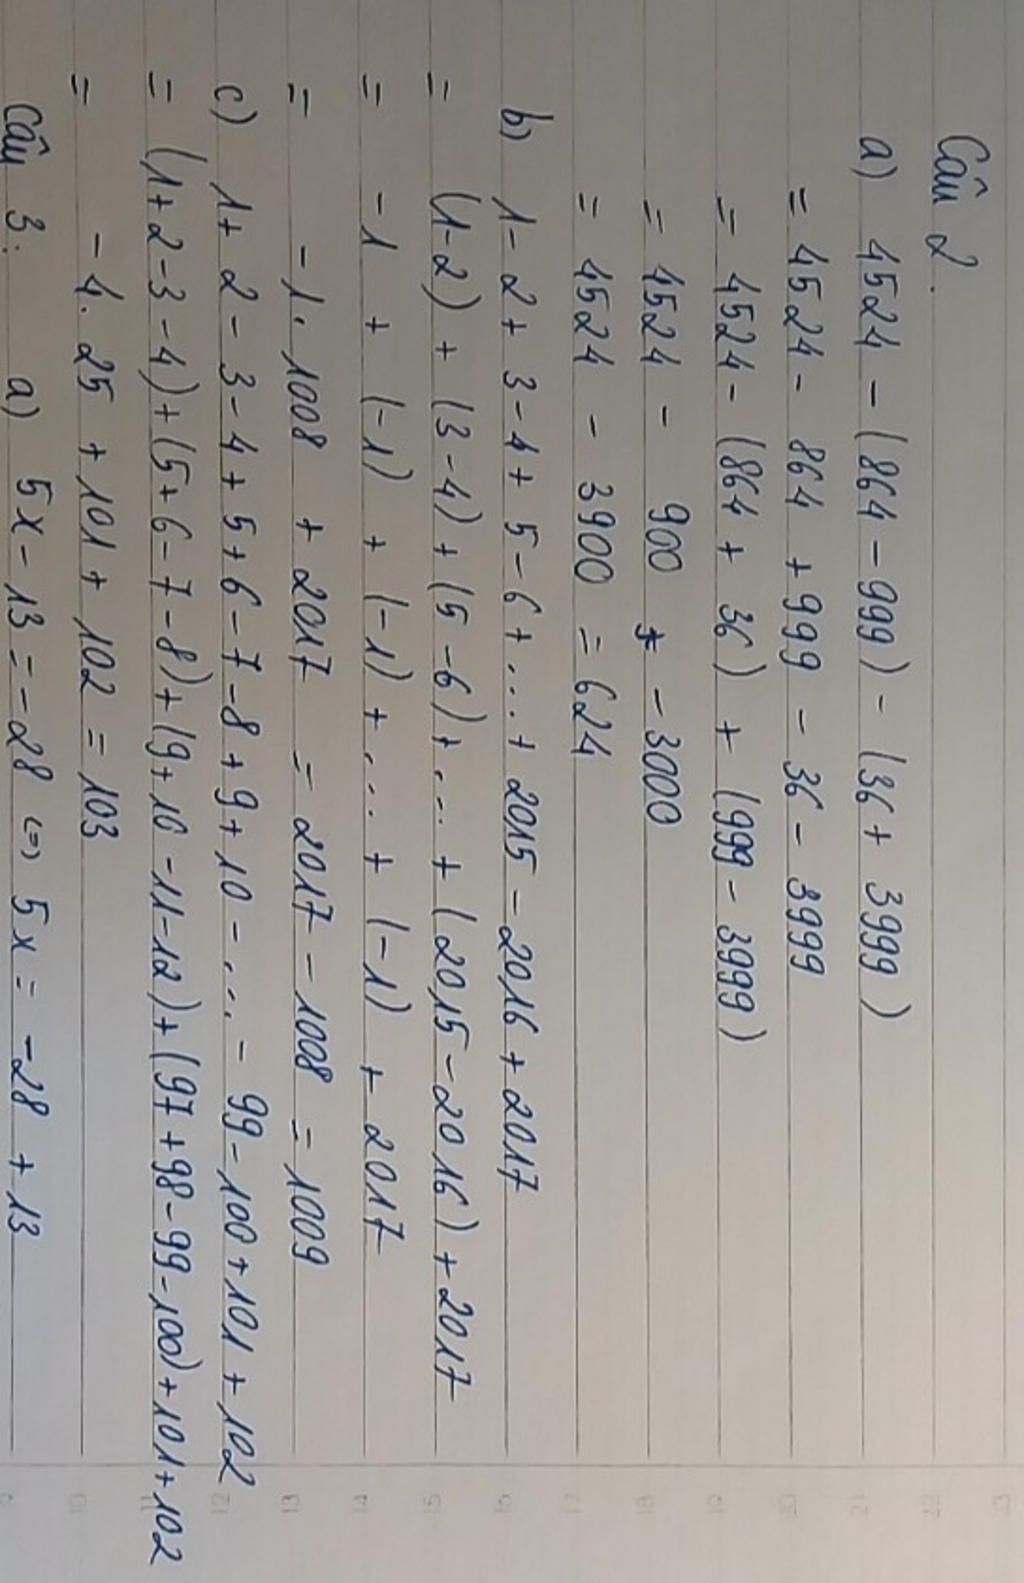 Câu 2.
a) 4524 - (864 - 999) - (36 + 3999)
= 4524 - 864 + 999 - 36 - 3999
= 4524 - (864 + 36) + (999 - 3999)
= 4524 - 900 - 3000
= 4524 - 3900 = 624
b) 1 - 2 + 3 - 4 + 5 - 6 + ... + 2015 - 2016 + 2017
= (1 - 2) + (3 - 4) + (5 - 6) + ... + (2015 - 2016) + 2017
= -1 + (-1) + (-1) + ... + (-1) + 2017
= -1. 1008 + 2017 = 2017 - 1008 = 1009
c) 1 + 2 - 3 - 4 + 5 + 6 - 7 - 8 + 9 + 10 - ... - 99 - 100 + 101 + 102
= (1 + 2 - 3 - 4) + (5 + 6 - 7 - 8) + (9 + 10 - 11 - 12) + (97 + 98 - 99 - 100) + 101 + 102
= - 4. 25 + 101 + 102 = 103
Câu 3: a) 5x - 13 = -28 <=> 5x = -28 + 13
23
22
21
20
19
18
17
16
15
14
13
12
11
10
9